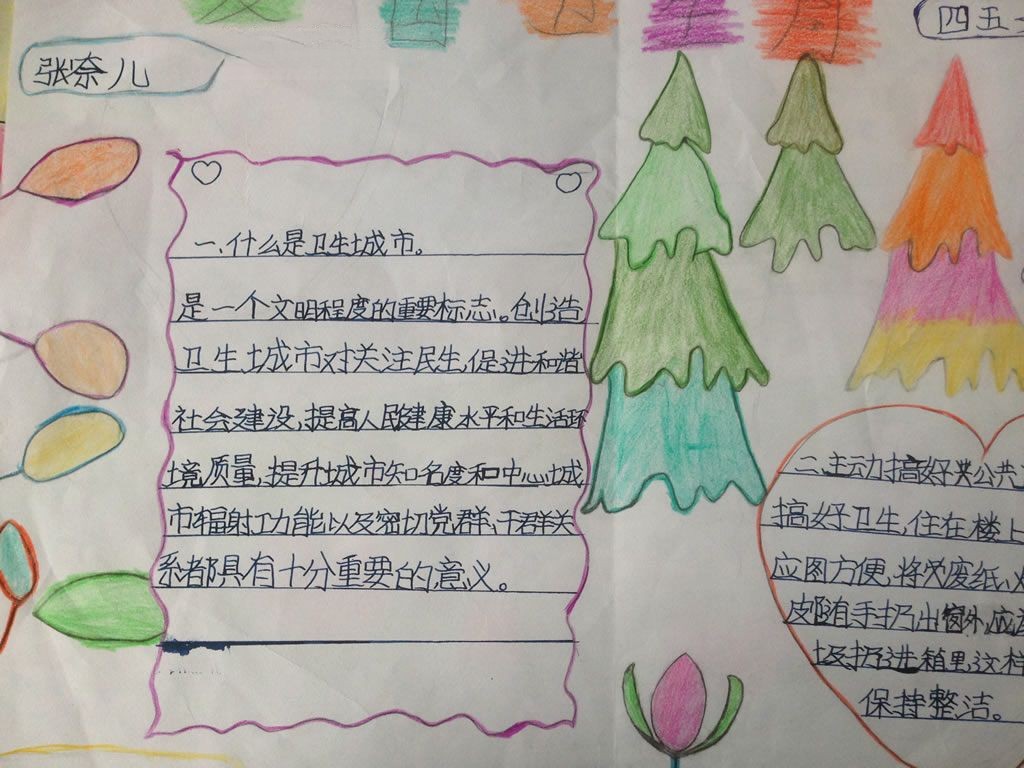 张奈儿
四五
一、什么是卫生城市。
是一个文明程度的重要标志。创造
卫生城市对关注民生,促进和谐
社会建设,提高人民健康水平和生活环
境质量,提升城市知名度和中心城
市辐射功能以及密切党群、干群关
系都具有十分重要的意义。
二、主动搞好公共
搞好卫生,住在楼上
应图方便,将废纸、
皮随手扔出窗外,应
圾扔进箱里这样
保持整洁。